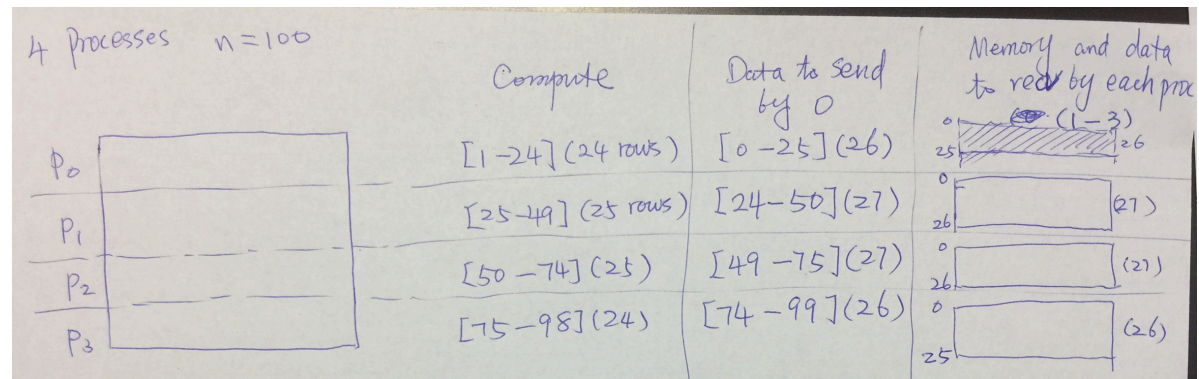 4 Processes n=100
Compute
Data to send
by 0
Memory and data
to recv by each proc
P0
[1-24] (24 rows)
[0-25] (26)
(1-3)
0
25
26
P1
[25-49] (25 rows)
[24-50] (27)
0
26
(27)
P2
[50-74] (25)
[49-75] (27)
0
26
(27)
P3
[75-98] (24)
[74-99] (26)
0
25
(26)